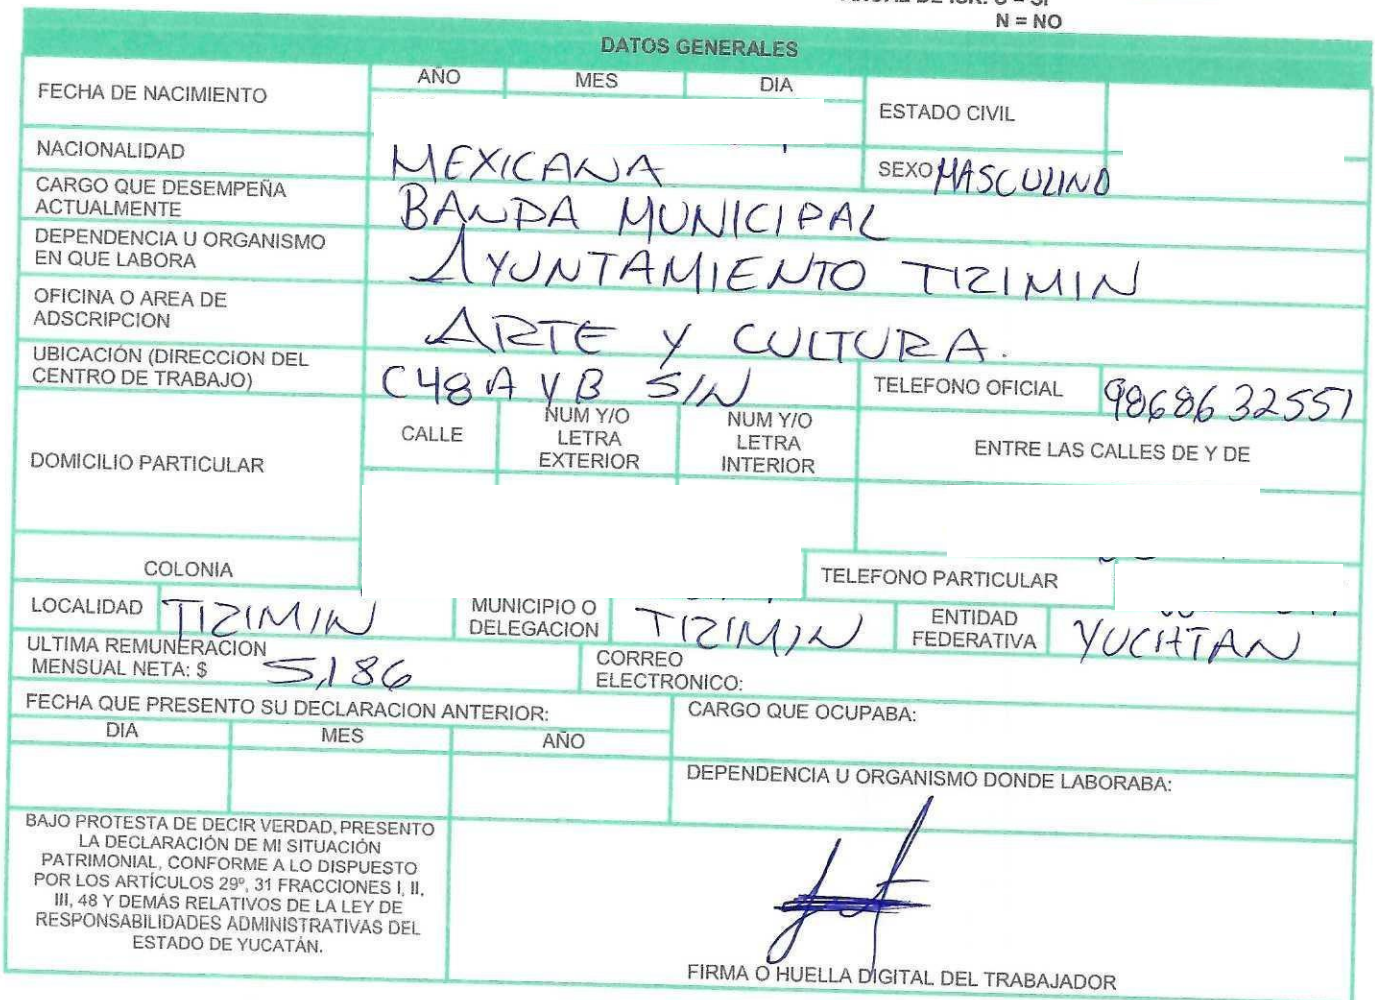 N = NO
DATOS GENERALES
FECHA DE NACIMIENTO
AÑO MES DIA
ESTADO CIVIL
NACIONALIDAD MEXICANA SEXO MASCULINO
CARGO QUE DESEMPEÑA
ACTUALMENTE
BANDA MUNICIPAL
DEPENDENCIA U ORGANISMO
EN QUE LABORA
AYUNTAMIENTO TIZIMIN
OFICINA O AREA DE
ADSCRIPCION
ARTE Y CULTURA.
UBICACIÓN (DIRECCION DEL
CENTRO DE TRABAJO)
C48 A Y B S/N
TELEFONO OFICIAL 9868632551
DOMICILIO PARTICULAR
CALLE
NUM Y/O
LETRA
EXTERIOR
NUM Y/O
LETRA
INTERIOR
ENTRE LAS CALLES DE Y DE
COLONIA
TELEFONO PARTICULAR
LOCALIDAD TIZIMIN
MUNICIPIO O
DELEGACION
TIZIMIN
ENTIDAD
FEDERATIVA
YUCATAN
ULTIMA REMUNERACION
MENSUAL NETA: $ 5,186
CORREO
ELECTRONICO:
FECHA QUE PRESENTO SU DECLARACION ANTERIOR:
DIA MES AÑO
CARGO QUE OCUPABA:
DEPENDENCIA U ORGANISMO DONDE LABORABA:
BAJO PROTESTA DE DECIR VERDAD, PRESENTO
LA DECLARACIÓN DE MI SITUACIÓN
PATRIMONIAL, CONFORME A LO DISPUESTO
POR LOS ARTÍCULOS 29º, 31 FRACCIONES I, II,
III, 48 Y DEMÁS RELATIVOS DE LA LEY DE
RESPONSABILIDADES ADMINISTRATIVAS DEL
ESTADO DE YUCATÁN.
FIRMA O HUELLA DIGITAL DEL TRABAJADOR